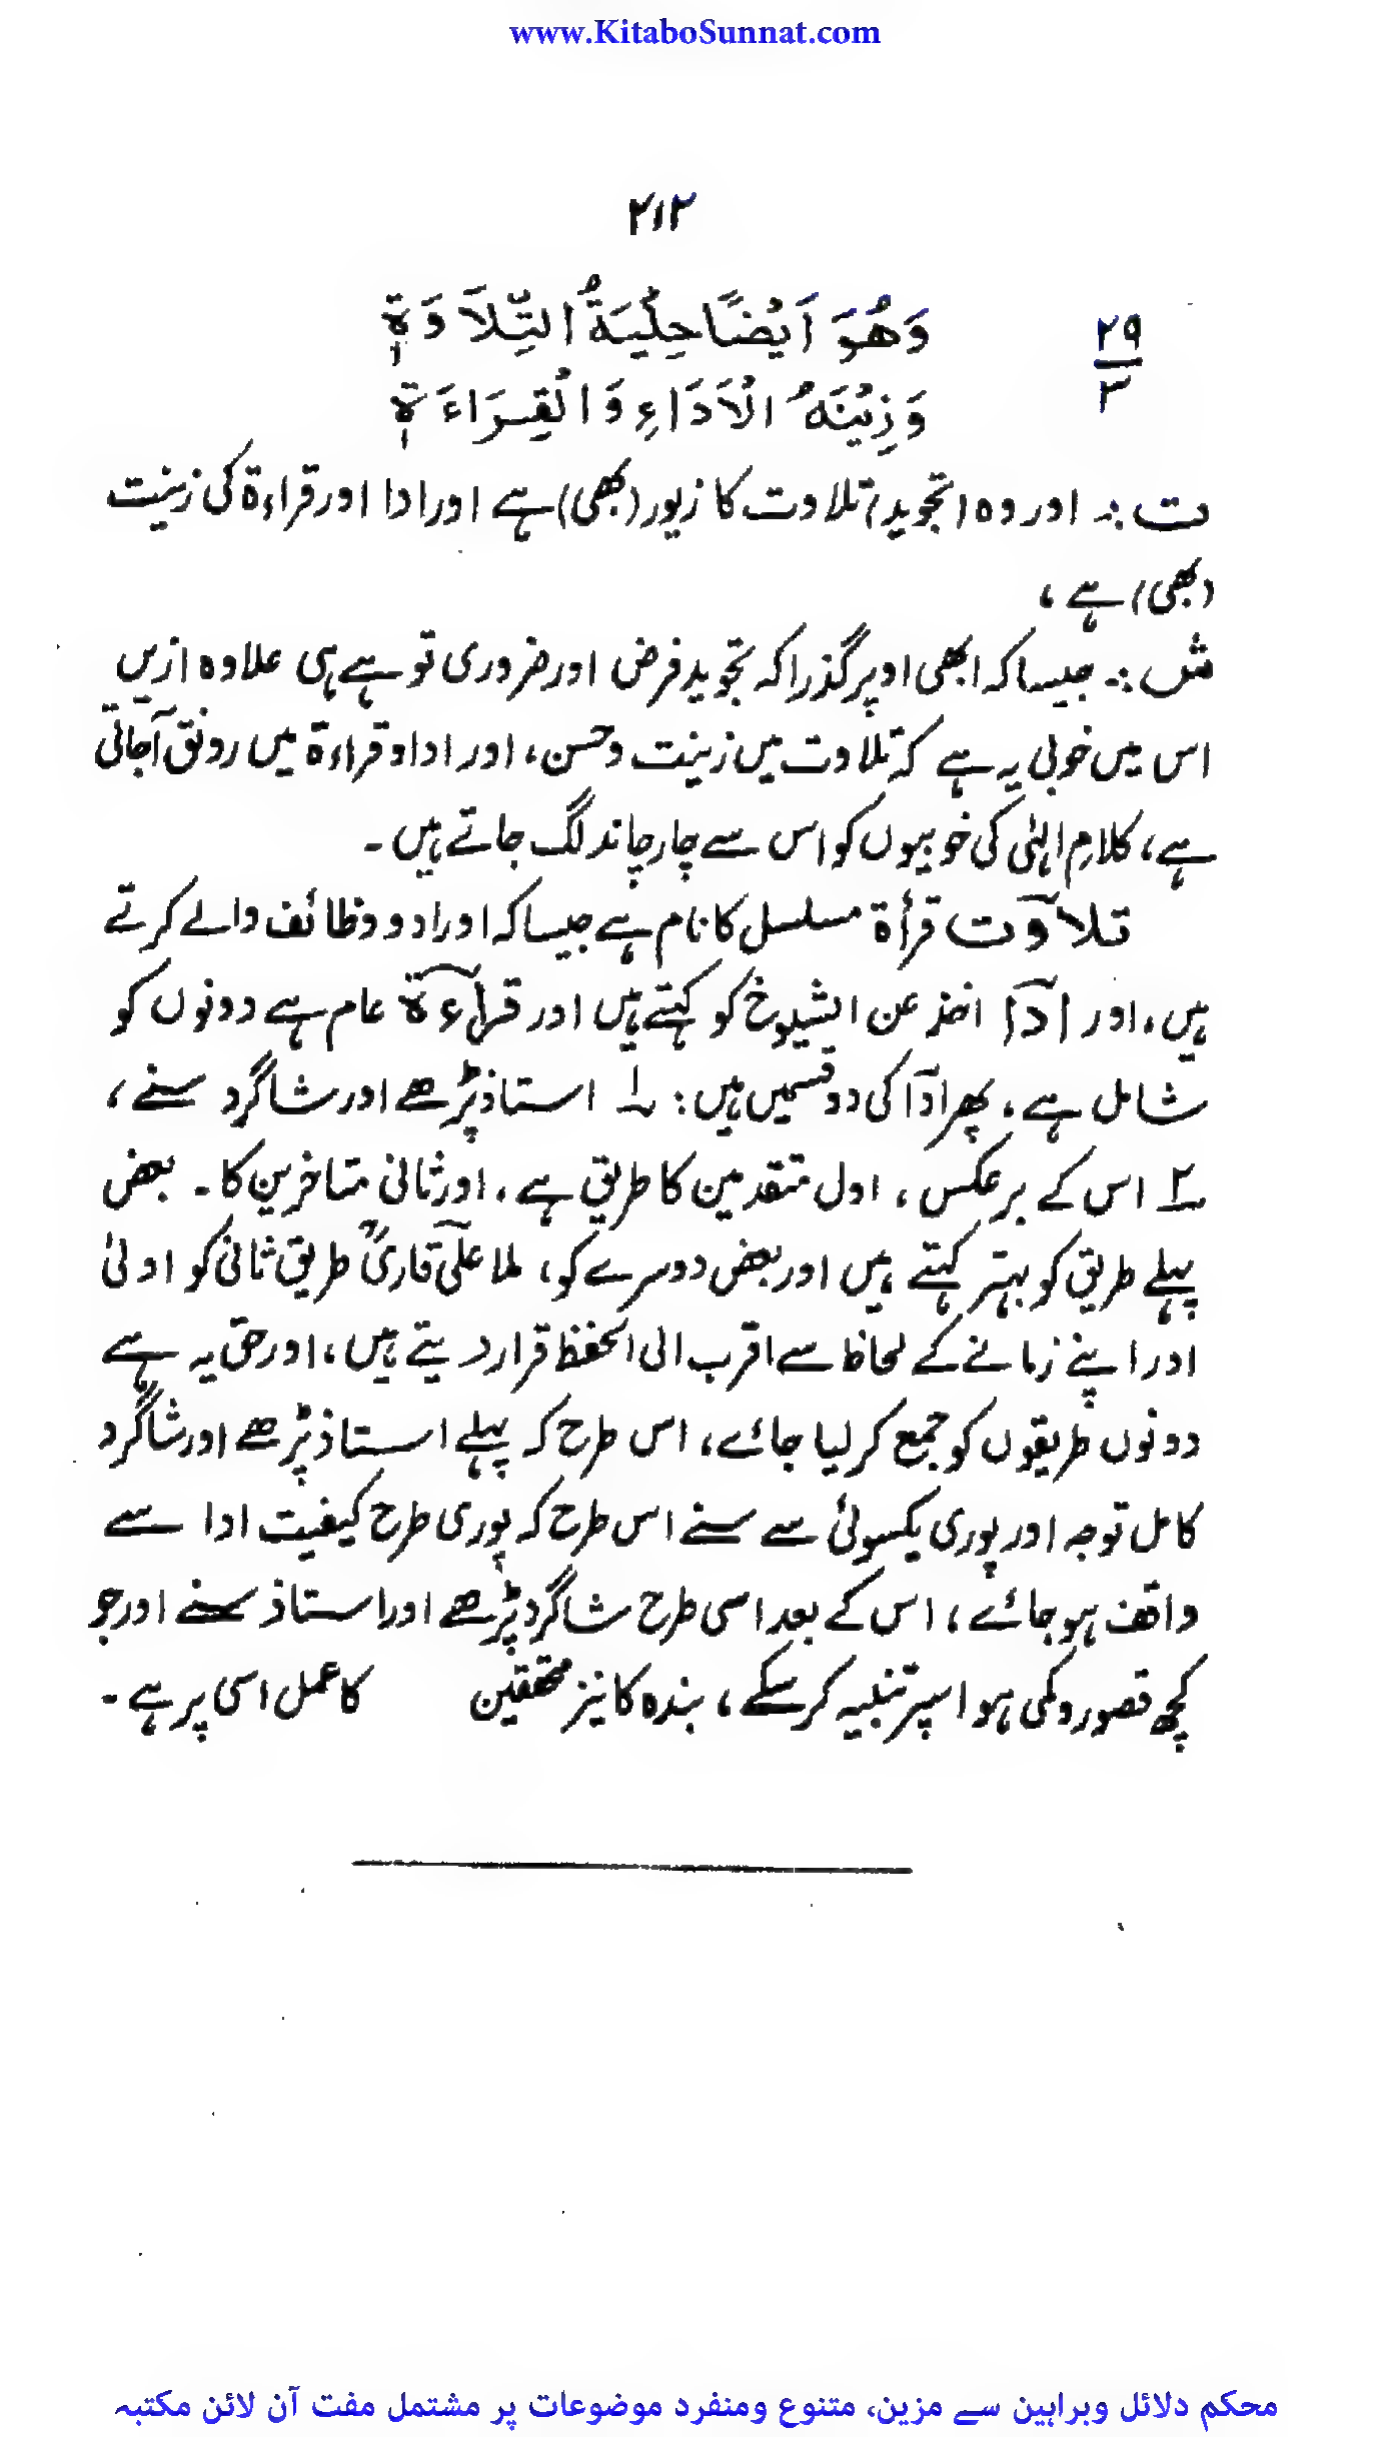 www.KitaboSunnat.com
۲۱۲
۲۹
۳
وَهُوَ اَيْضًا حِلْيَةُ التِّلَاَوَةِ
وَزِيْنَةُ الْاَدَاءِ وَالْقِرَاءَةِ
ت :۔ اور وہ (تجوید) تلاوت کا زیور (بھی) ہے اور ادا اور قراءۃ کی زینت
(بھی) ہے ،
ش :۔ جیسا کہ ابھی اوپر گذرا کہ تجوید فرض اور ضروری تو ہے ہی علاوہ ازیں
اس میں خوبی یہ ہے کہ تلاوت میں زینت وحسن، اور ادا و قراءۃ میں رونق آجاتی
ہے، کلامِ الہٰی کی خوبیوں کو اس سے چار چاند لگ جاتے ہیں ۔
تلاوت قرأۃ مسلسل کا نام ہے جیسا کہ اوراد و وظائف والے کرتے
ہیں، اور ادا اخذ عن الشیوخ کو کہتے ہیں اور قراءۃ عام ہے دونوں کو
شامل ہے، پھر ادا کی دو قسمیں ہیں: ۱؎ استاذ پڑھے اور شاگرد سنے ،
۲؎ اس کے برعکس ، اول متقدمین کا طریق ہے، اور ثانی متاخرین کا ۔ بعض
پہلے طریق کو بہتر کہتے ہیں اور بعض دوسرے کو، ملا علی قاریؒ طریق ثانی کو اولیٰ
اور اپنے زمانے کے لحاظ سے اقرب الی الحفظ قرار دیتے ہیں، اور حق یہ ہے
دونوں طریقوں کو جمع کر لیا جائے، اس طرح کہ پہلے استاذ پڑھے اور شاگرد
کامل توجہ اور پوری یکسوئی سے سنے اس طرح کہ پوری طرح کیفیت ادا سے
واقف ہو جائے ، اس کے بعد اسی طرح شاگرد پڑھے اور استاذ سنے اور جو
کچھ قصور و کمی ہو اسپر تنبیہ کر سکے ، بندہ کا نیز محققین کا عمل اسی پر ہے ۔
محکم دلائل وبراہین سے مزین، متنوع ومنفرد موضوعات پر مشتمل مفت آن لائن مکتبہ